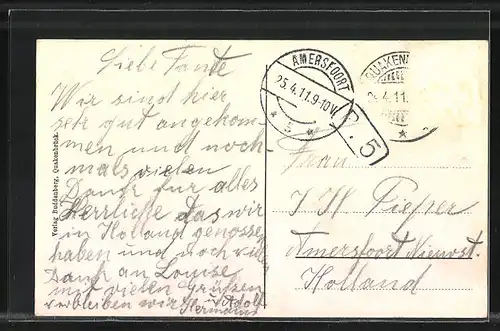 Liebe Tante
Wir sind hier
sehr gut angekom-
men und noch-
mals vielen
Dank für alles
Herrliche das wir
in Holland genossen
haben und noch viel
Dank an Louise
mit vielen Grüssen
verbleiben wir Adolf
Hermann
Verlag Buddenberg, Quakenbrück.
AMERSFOORT
25.4.11.9-10V.
* 5 *
QUAKENB
2 .4.11.
*
5
Frau
J H Pieper
Amersfoort Nieuwst.
Holland